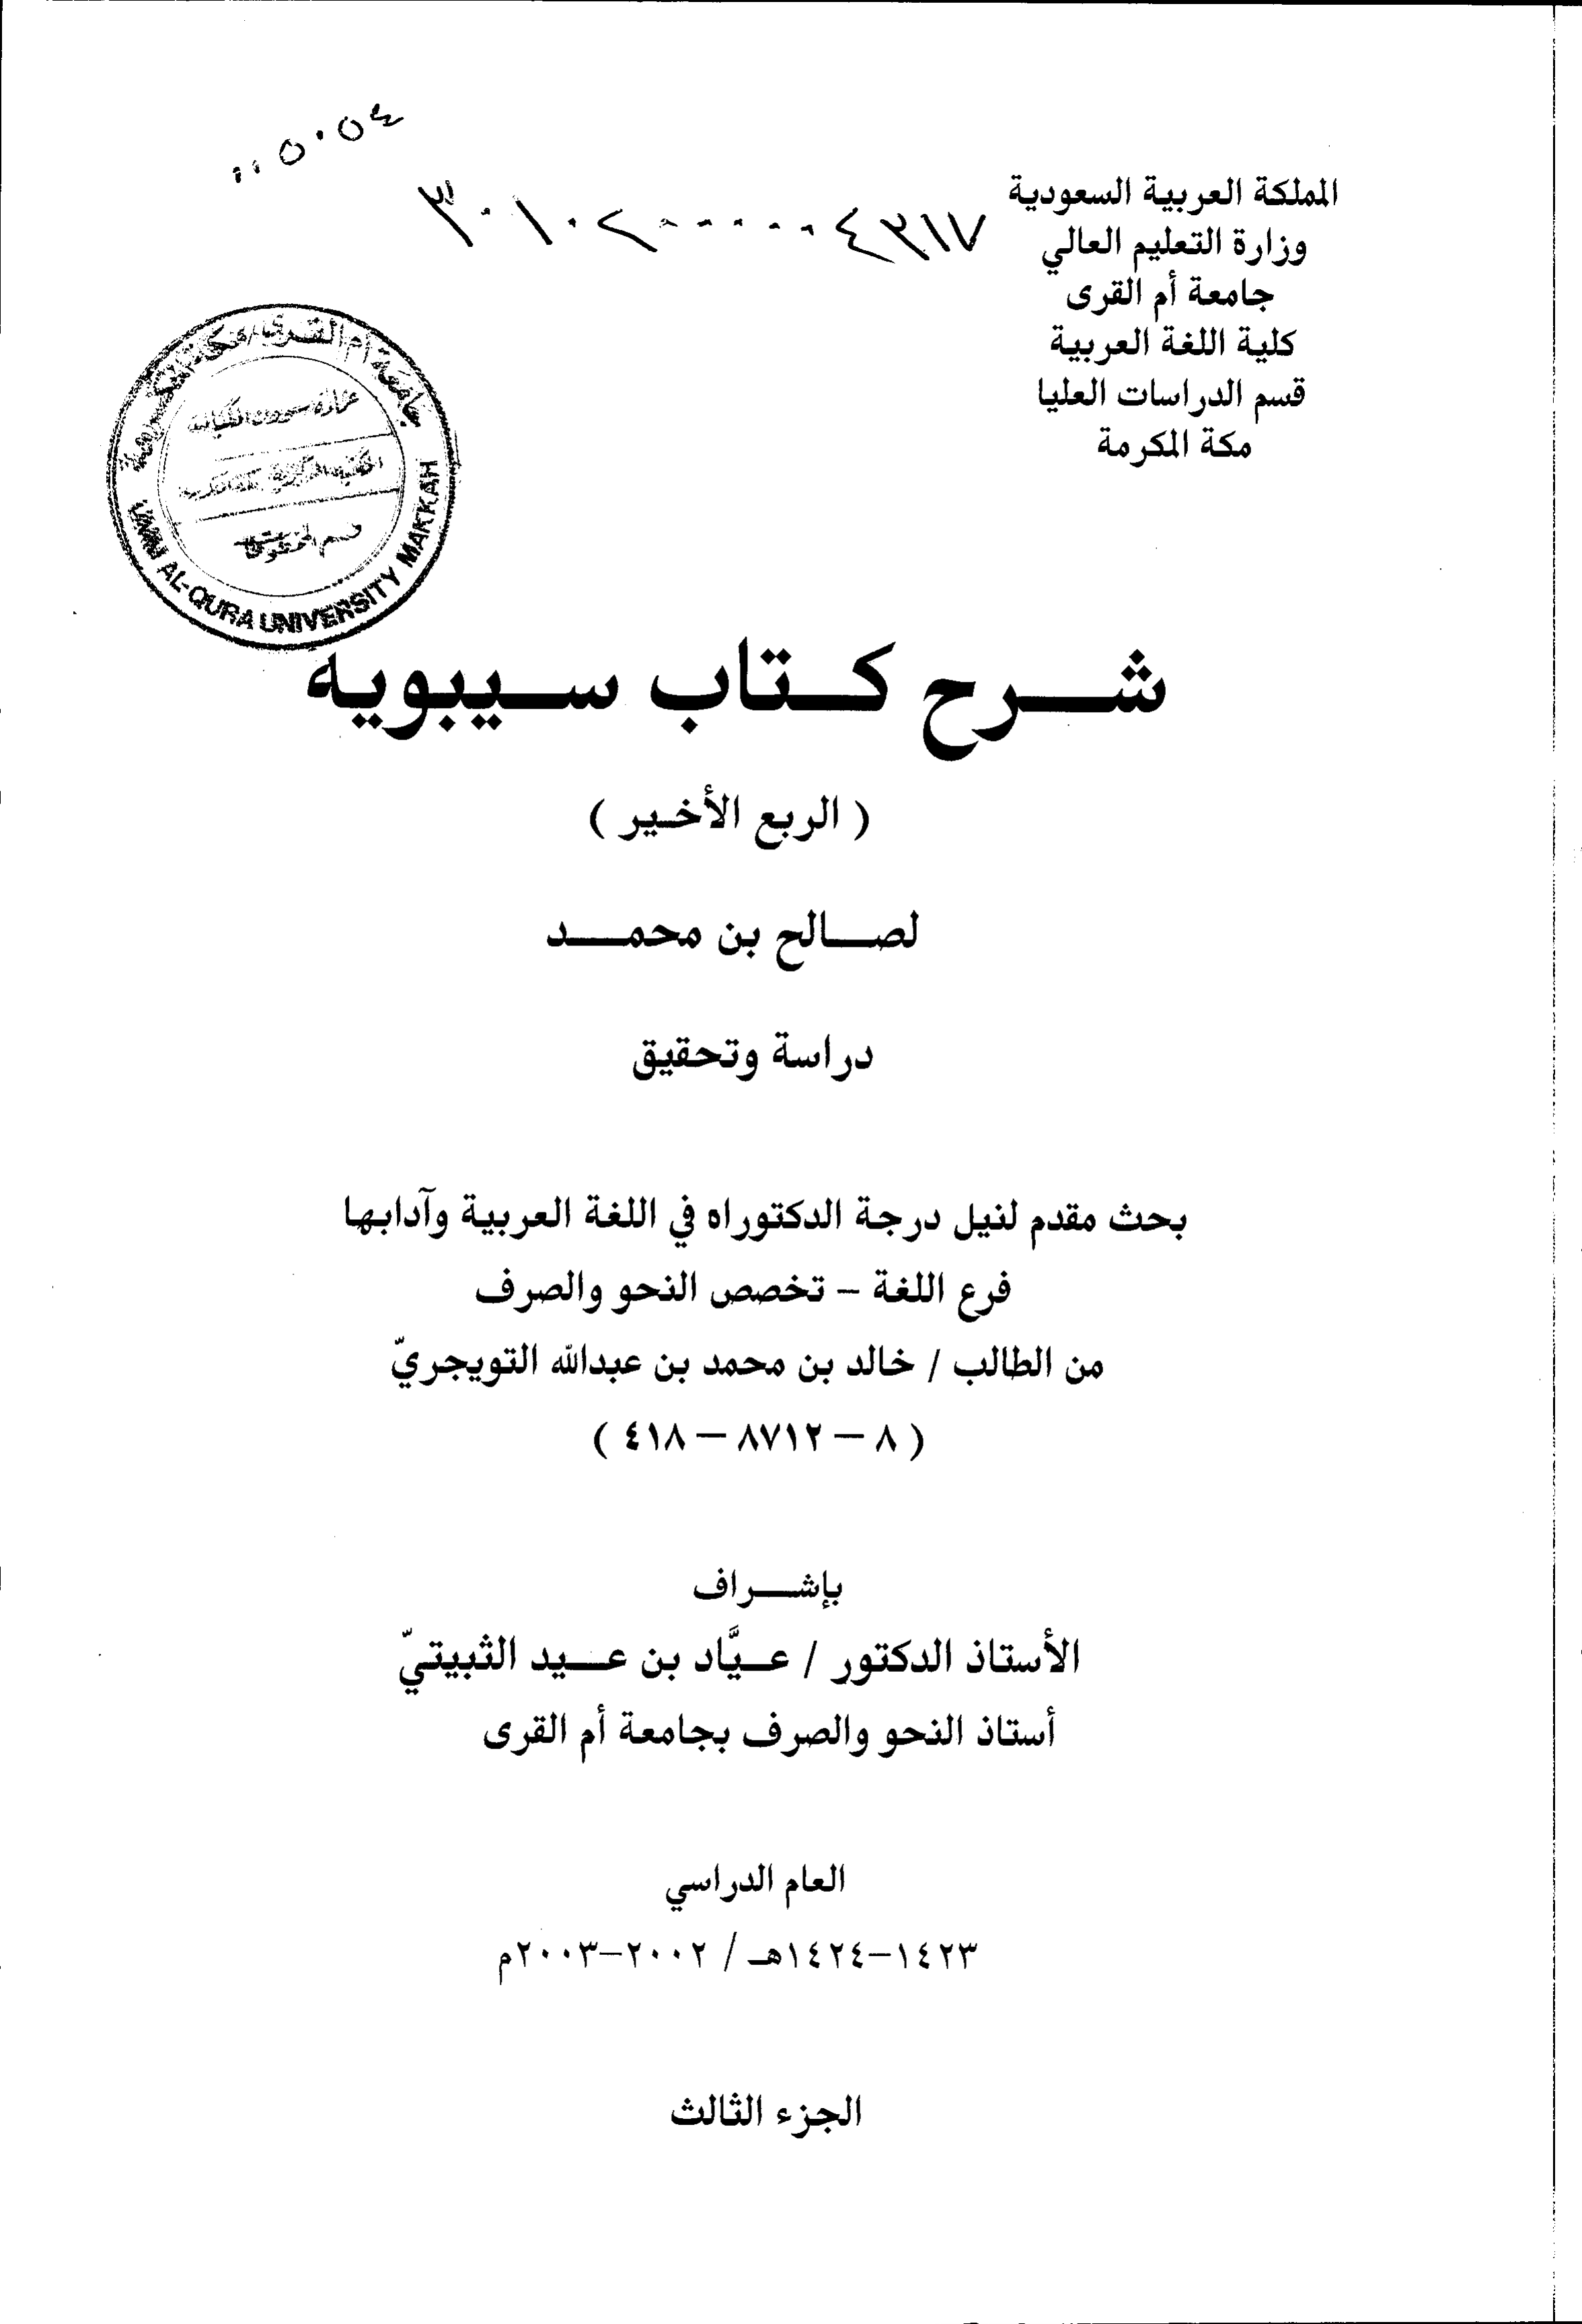 ٠٠٥٠٥٤
٣٠١٠٢٠٠٠٠٠٤٣١٧
المملكة العربية السعودية
وزارة التعليم العالي
جامعة أم القرى
كلية اللغة العربية
قسم الدراسات العليا
مكة المكرمة
جامعة أم القرى
UMM AL-QURA UNIVERSITY MAKKAH
شرح كتاب سيبويه
( الربع الأخير )
لصالح بن محمد
دراسة وتحقيق
بحث مقدم لنيل درجة الدكتوراه في اللغة العربية وآدابها
فرع اللغة – تخصص النحو والصرف
من الطالب / خالد بن محمد بن عبدالله التويجريّ
( ٨ – ٨٧١٢ – ٤١٨ )
بإشراف
الأستاذ الدكتور / عيَّاد بن عيد الثبيتيّ
أستاذ النحو والصرف بجامعة أم القرى
العام الدراسي
١٤٢٣–١٤٢٤هـ / ٢٠٠٢–٢٠٠٣م
الجزء الثالث